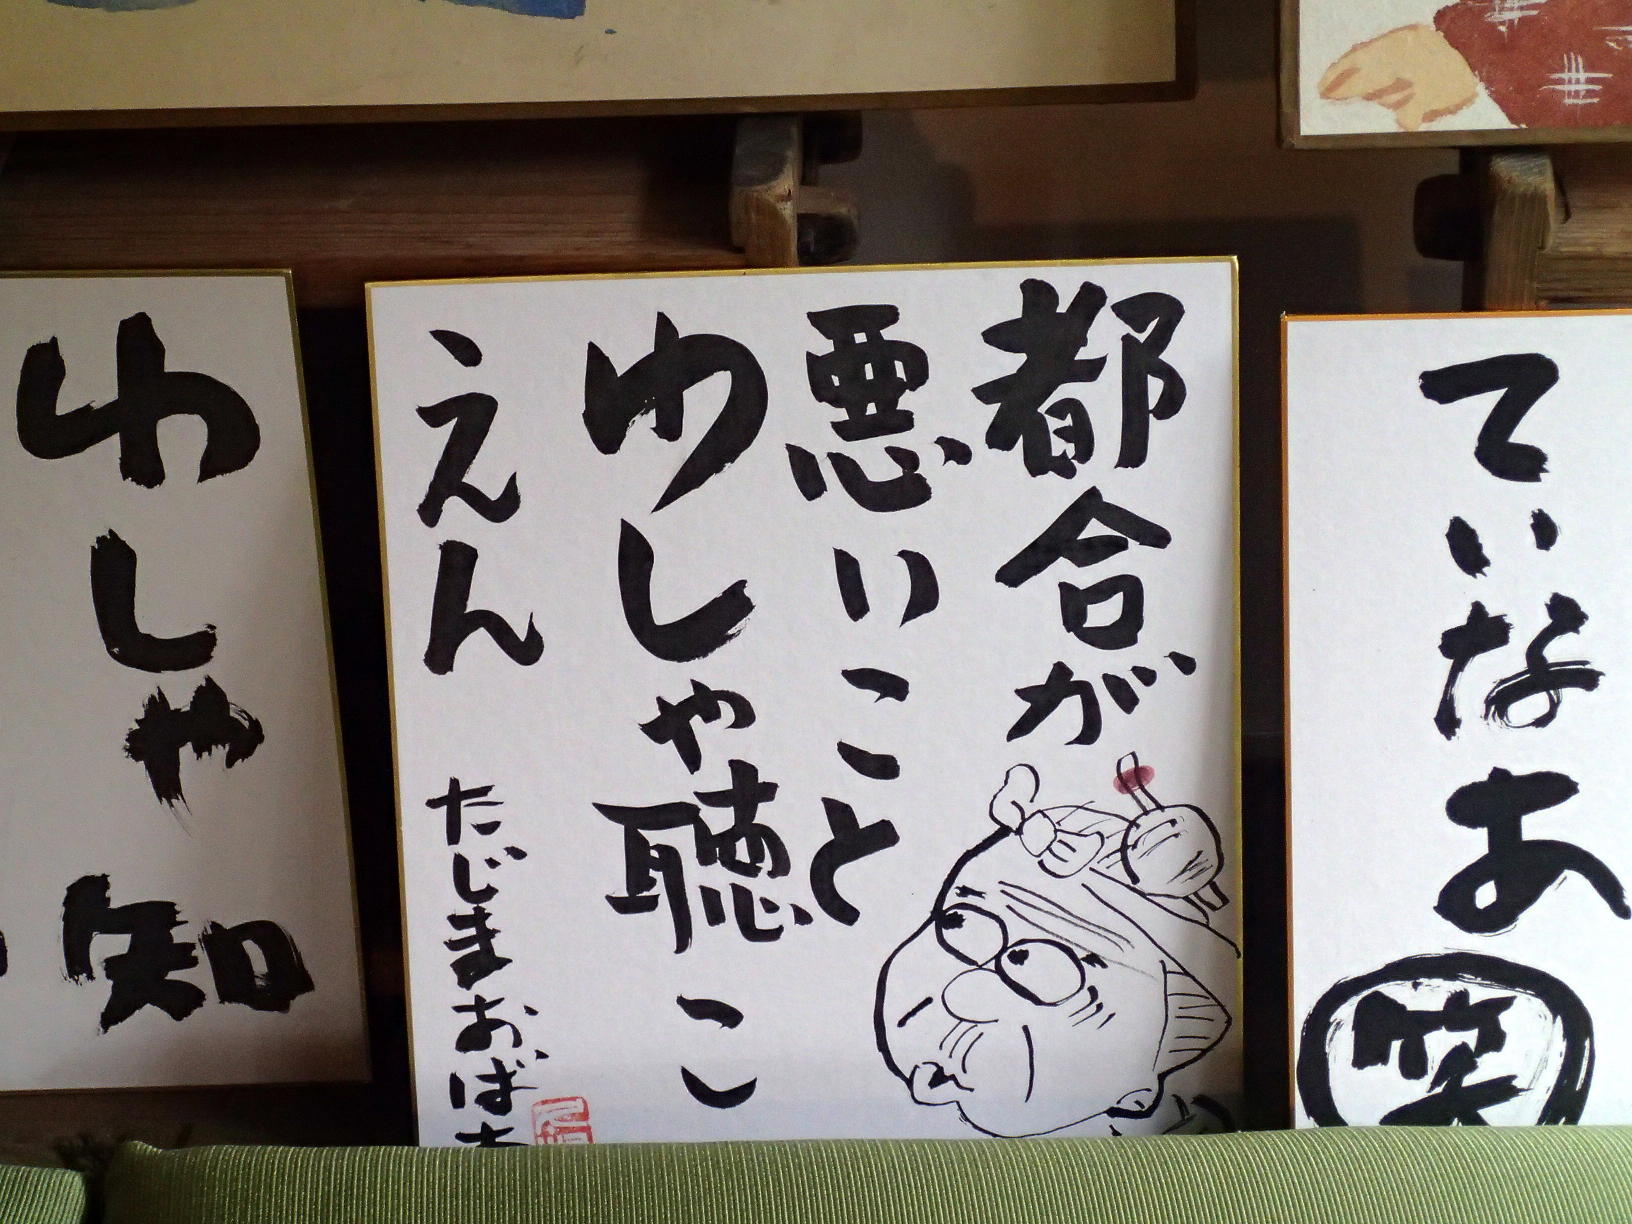 ていなあ
笑
都合が
悪いこと
わしゃ聴こ
えん
たじまおばあ
わしゃ知